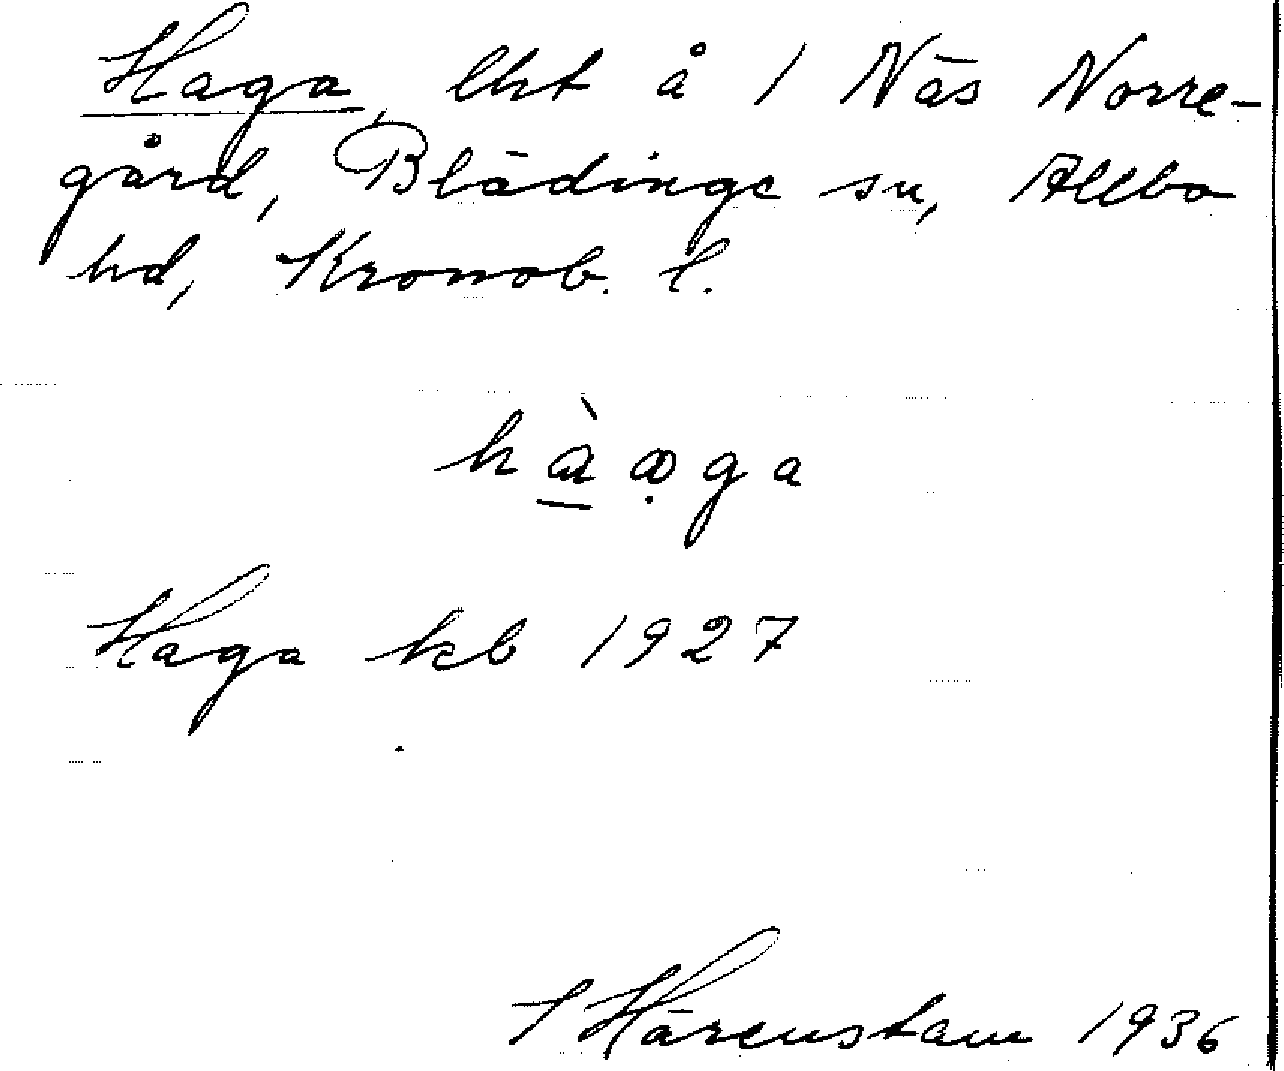 Haga, lht å 1 Näs Norre-
gård, Blädinge sn, Allbo
hd, Kronob. l.
Haga kb 1927
Härenstam 1936